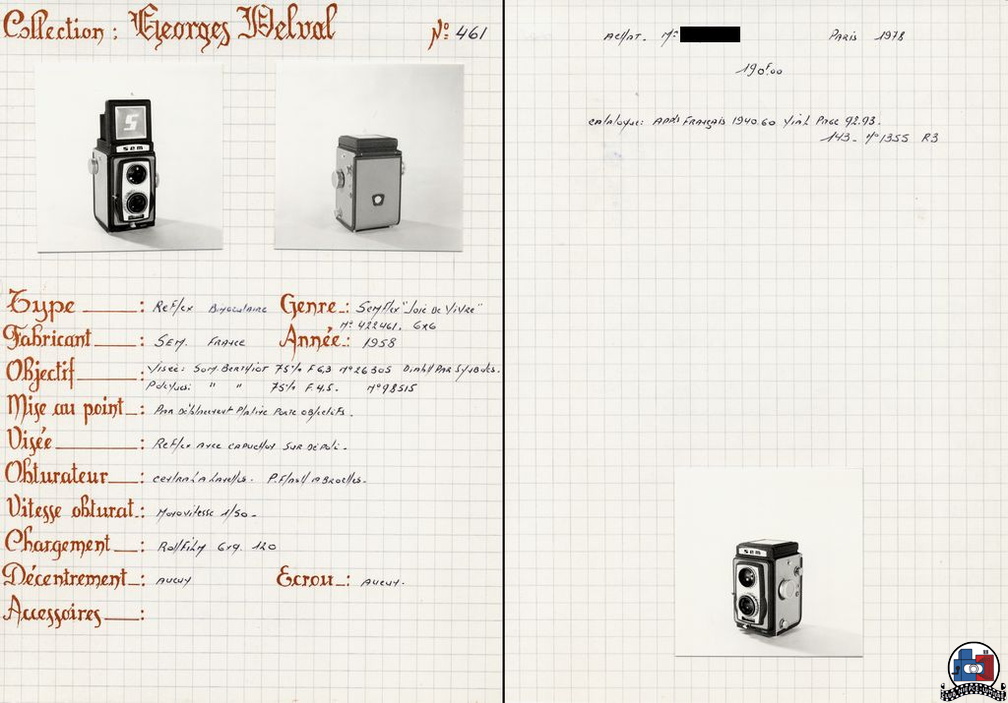 Collection : Georges Delval N° 461
S
SEM
Type : Reflex Binoculaire Genre : Semflex "Joie De Vivre"
N° 422461. 6x6
Fabricant : SEM. France Année : 1958
Objectif : Visée: Som Berthiot 75m/m F 6,3 N° 26305 Diaph Par Symboles.
Pdevues: " " 75m/m F.4.5. N° 98515
Mise au point : Par Déplacement Platine Porte objectifs.
Visée : Reflex avec capuchon sur dépoli.
Obturateur : central à lamelles. P. Flash à Broches.
Vitesse obturat. : Monovitesse 1/50.
Chargement : Rollfilm 6x9. 120
Décentrement : Aucun Ecrou : Aucun.
Accessoires :
Achat. Mr Paris 1978
190F.00
catalogue: App Français 1940.60 Vial Page 92.93.
143. N° 1355 R3
SEM